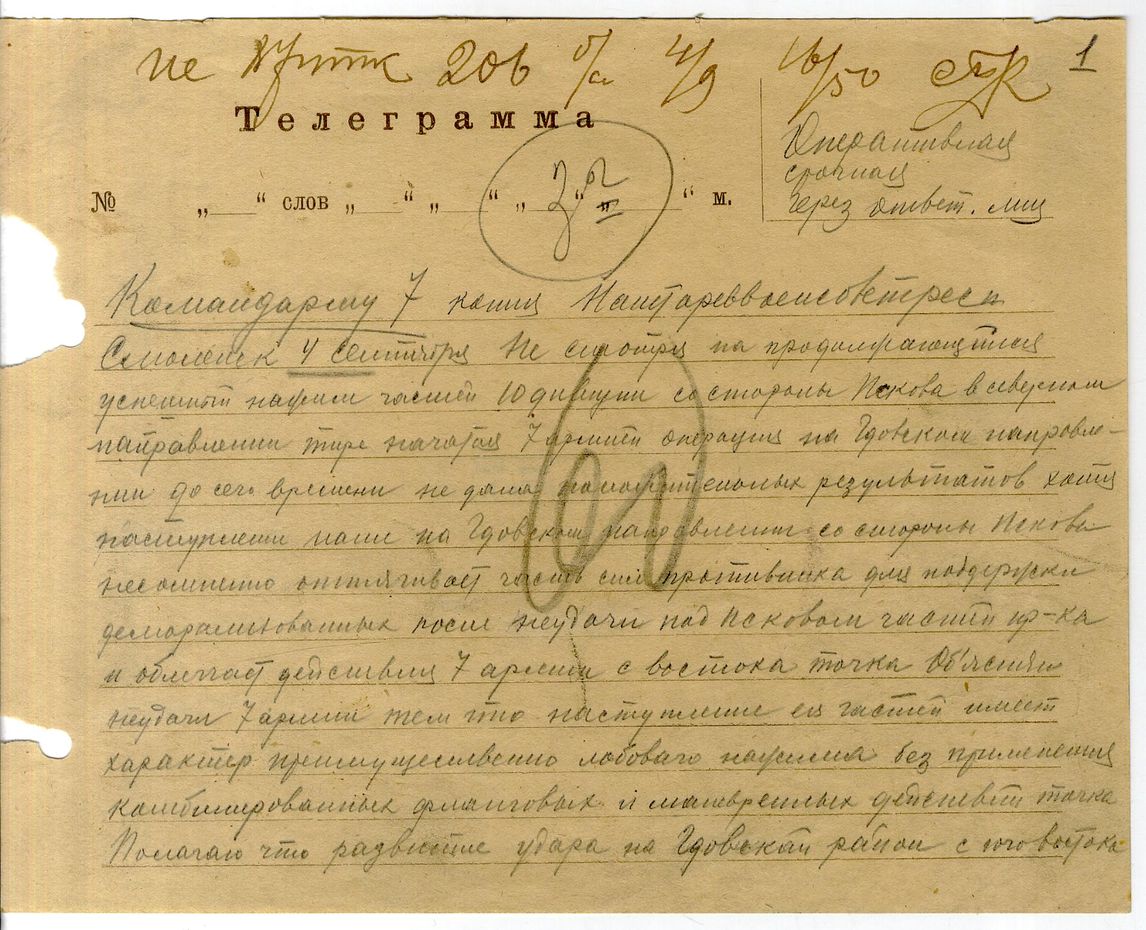 206 4/9 16/50 1
Телеграмма
Оперативная
срочная
через ответ. лиц
№ „ “ слов „ “ „ “ „ “ „ “ м.
Командарму 7 копия
Смоленск 4 сентября Не смотря на продолжающийся
успешный нажим частей 10 дивизии со стороны Пскова в северном
направлении тире начатая 7 армией операция на Гдовском направле-
нии до сего времени не дала положительных результатов хотя
наступление наше на Гдовском направлении со стороны Пскова
несомненно оттягивает часть сил противника для поддержки
деморализованных после неудачи под Псковом частей пр-ка
и облегчает действия 7 армии с востока точка Об'ясняю
неудачи 7 армии тем что наступление ея частей имеет
характер преимущественно лобового нажима без применения
комбинированных фланговых и маневренных действий точка
Полагаю что развитие удара на Гдовский район с юго востока